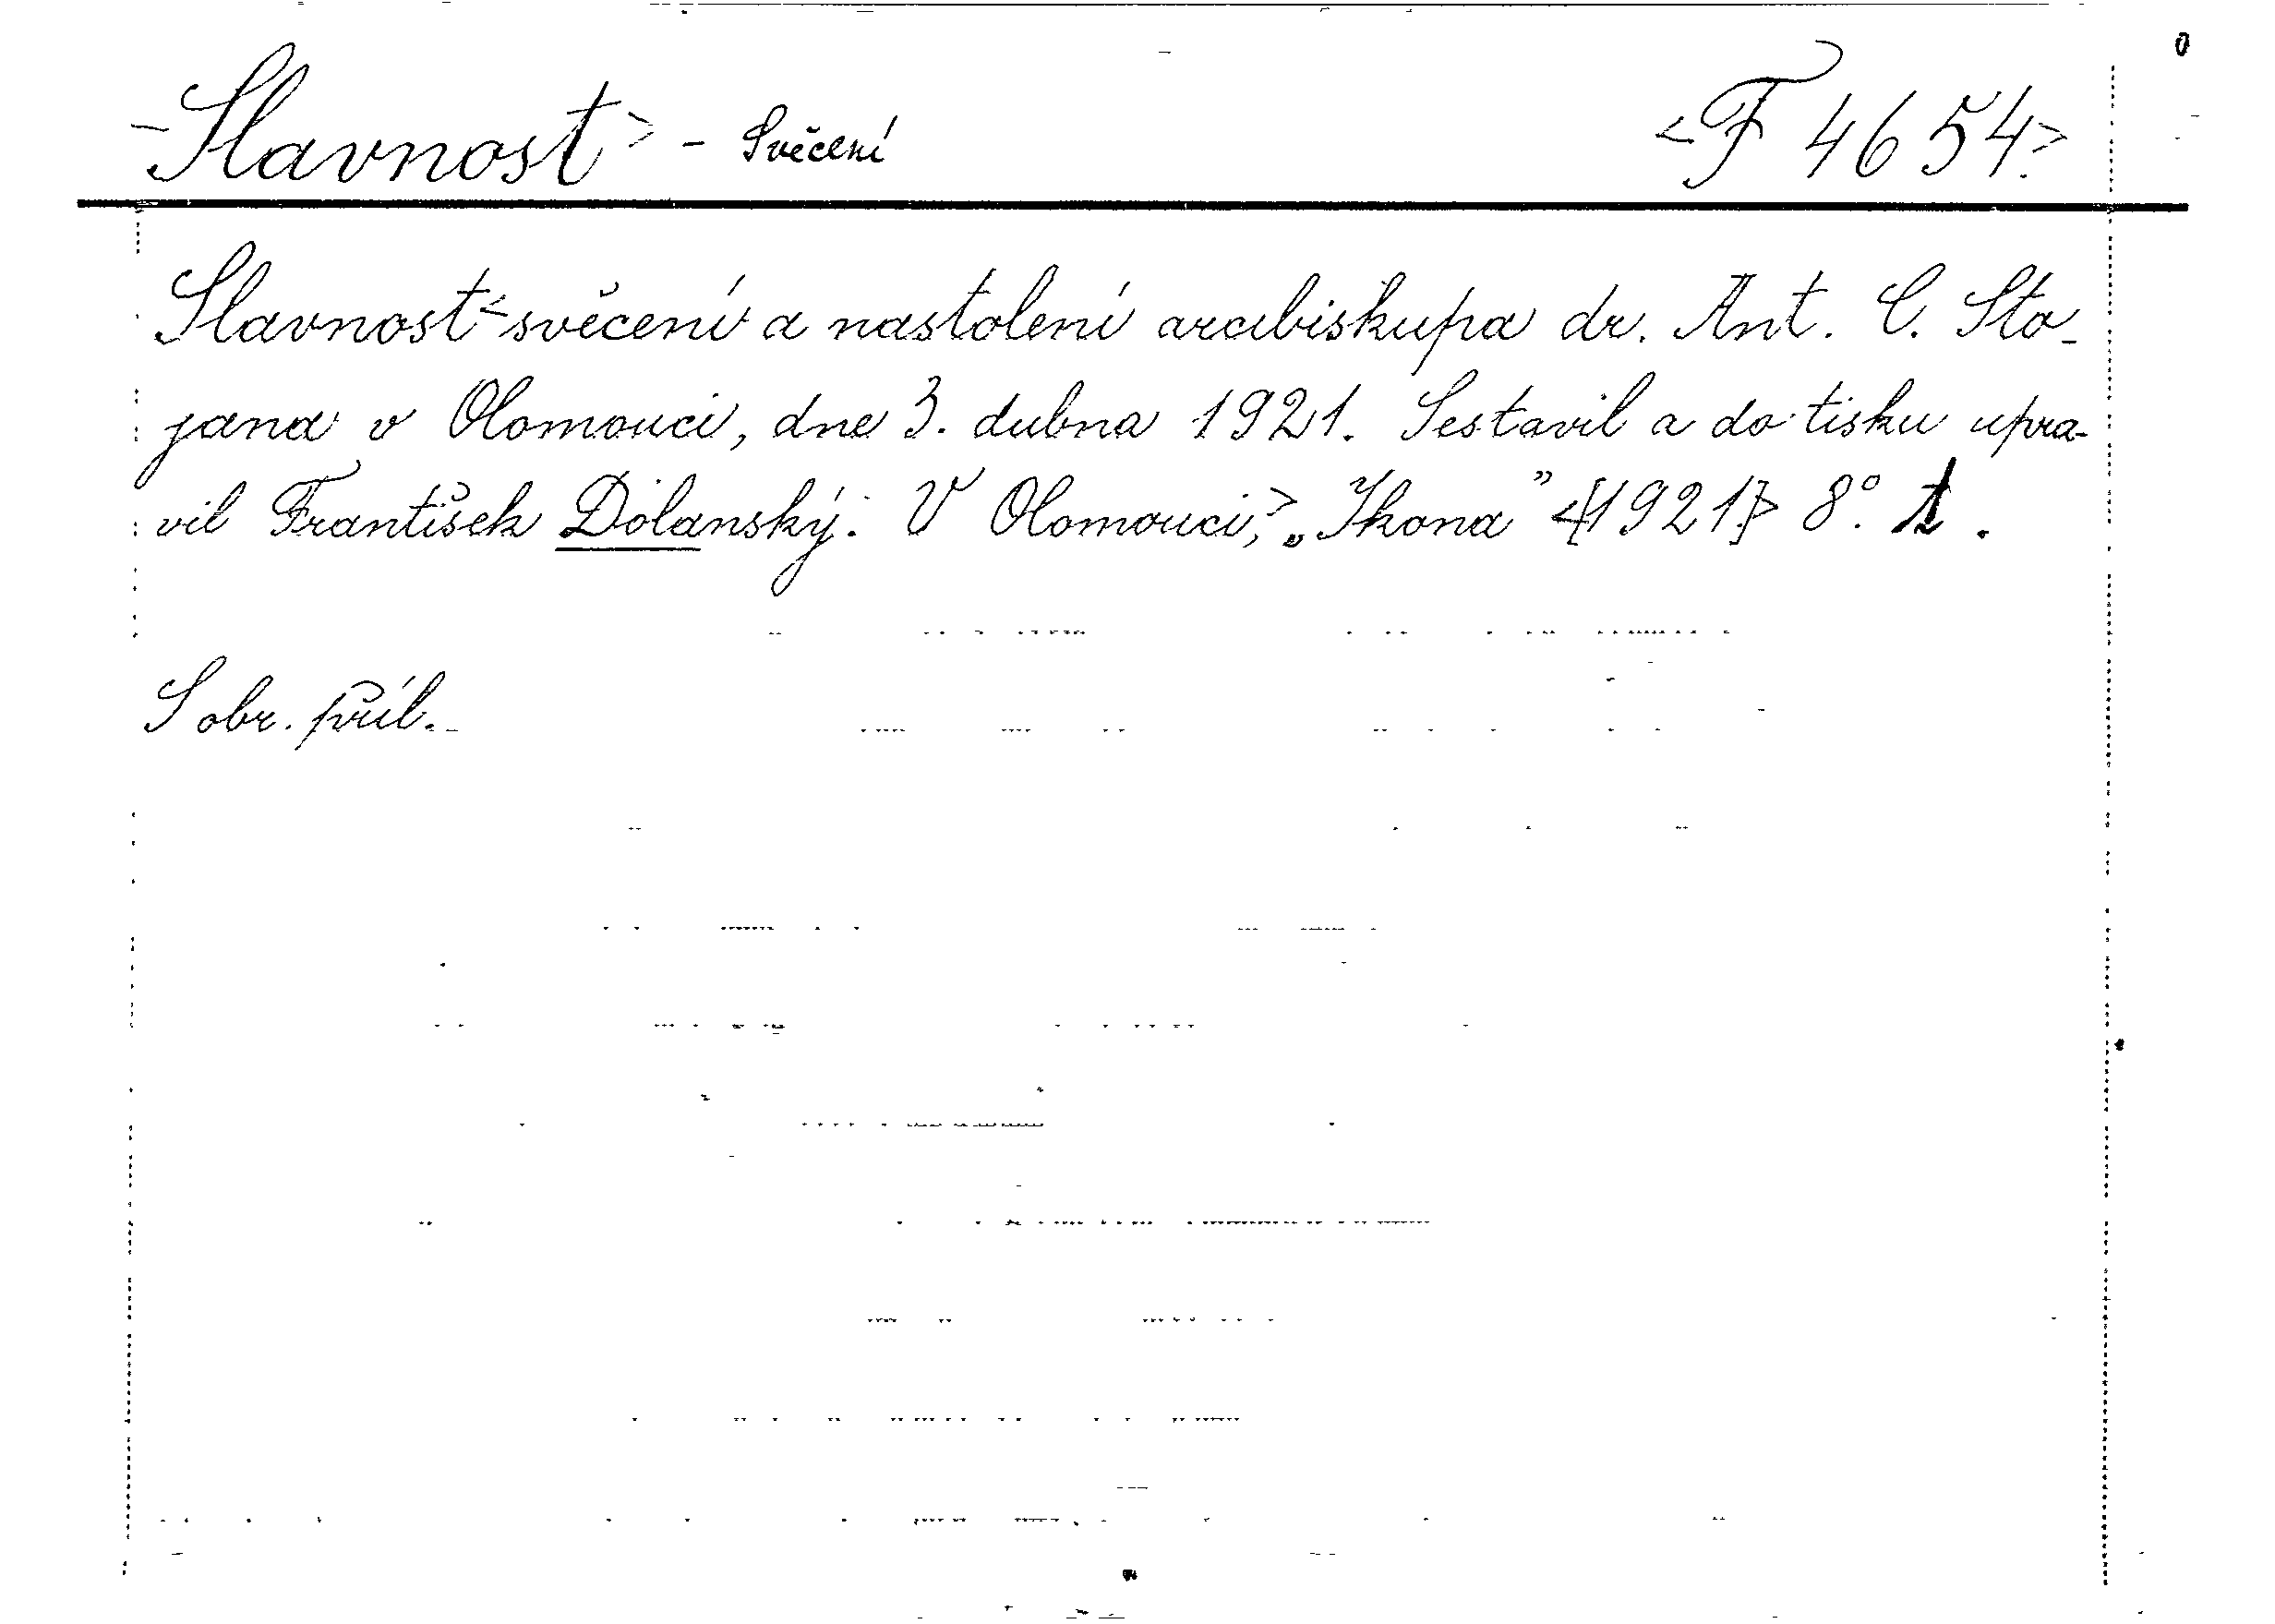 <Slavnost> - Svěcení <F 4654>
Slavnost< svěcení a nastolení arcibiskupa dr. Ant. C. Sto-
jana v Olomouci, dne 3. dubna 1921. Sestavil a do tisku upra-
vil František Dolanský. V Olomouci,> „Ikona” <[1921]> 8°.
S obr. příl.